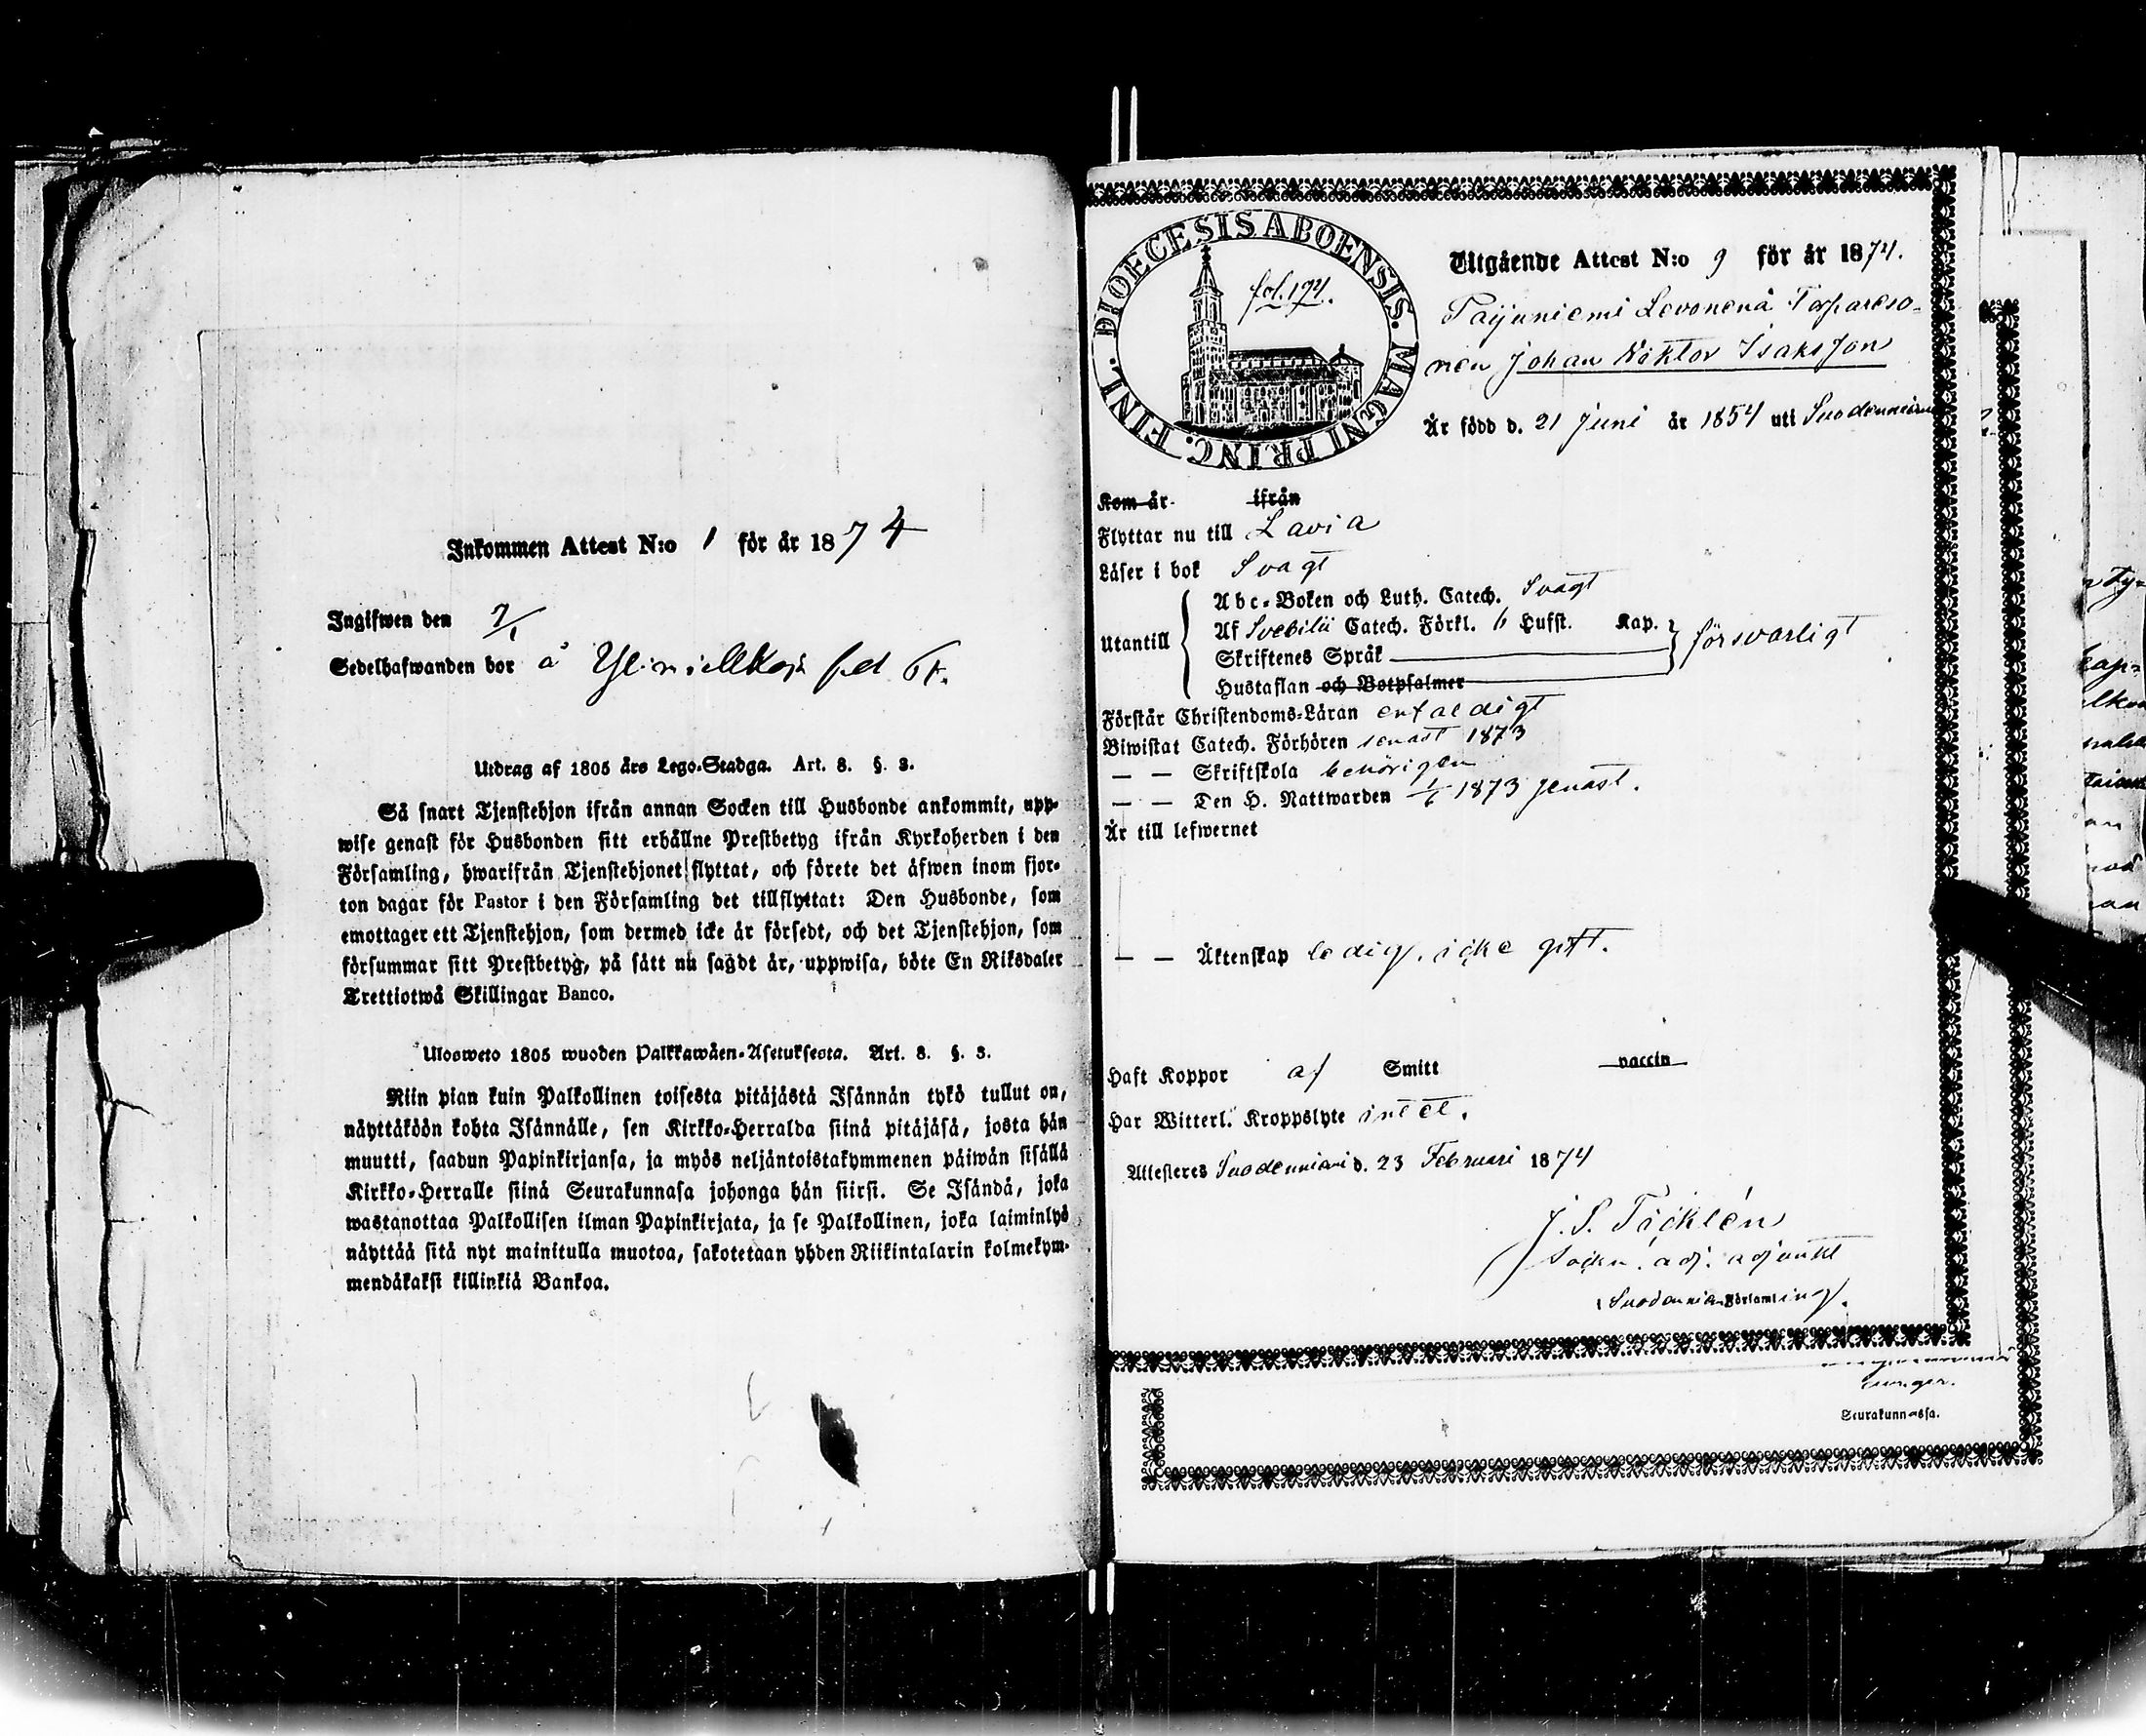 Inkommen Attest N:o 1 för år 1874
Ingifwen den 7/1
Sedelhafwanden bor å
Utdrag af 1805 års Lego-Stadga. Art. 8. §. 3.
Så snart Tjenstehjon ifrån annan Socken till Husbonde ankommit, upp-
wise genast för Husbonden sitt erhållne Prestbetyg ifrån Kyrkoherden i den
Församling, hwarifrån Tjenstehjonet flyttat, och förete det äfwen inom fjor-
ton dagar för Pastor i den Församling det tillflyttat: Den Husbonde, som
emottager ett Tjenstehjon, som dermed icke är försedt, och det Tjenstehjon, som
försummar sitt Prestbetyg, på sätt nu sagdt är, uppwisa, böte En Riksdaler
Trettiotwå Skillingar Banco.
Ulosweto 1805 wuoden Palkkawäen-Asetuksesta. Art. 8. §. 3.
Niin pian kuin Palkollinen toisesta pitäjästä Isännän tykö tullut on,
näyttäköön kohta Isännälle, sen Kirkko-Herralda siinä pitäjäsä, josta hän
muutti, saadun Papinkirjansa, ja myös neljäntoistakymmenen päiwän sisällä
Kirkko-Herralle siinä Seurakunnasa johonga hän siirsi. Se Isändä, joka
wastanottaa Palkollisen ilman Papinkirjata, ja se Palkollinen, joka laiminlyö
näyttää sitä nyt mainitulla muotoa, sakotetaan yhden Riikintalarin kolmekym-
mendäkaksi killinkiä Bankoa.
DIOECESIS ABOENSIS. MAGNI PRINC. FINL.
fol. 174.
Utgående Attest N:o 9 för år 1874.
Levonenå Torpareso-
nen Johan Viktor Isaksson
Är född d. 21 Juni år 1854 uti Suodenniemi
Kom år ifrån
Flyttar nu till Lavia
Läser i bok Svagt
Utantill
Abc-Boken och Luth. Catech. Svagt
Af Svebilii Catech. Förkl. 6 Hufst. Kap.
Skriftenes Språk
försvarligt
Hustaflan och Botpsalmer
Förstår Christendoms-Läran enfaldigt
Biwistat Catech. Förhören senast 1873
— — Skriftskola behörigen
— — Den H. Nattwarden 1/6 1873 senast.
Är till lefwernet
— — Äktenskap ledig, icke gift.
Haft Koppor af Smitt vaccin
Har Witterl. Kroppslyte intet.
Attesteres Suodenniemi d. 23 Februari 1874
J. S. Täcklén
Sockn. adj. adjunkt
i Suodenniemi Församling.
Seurakunnassa.